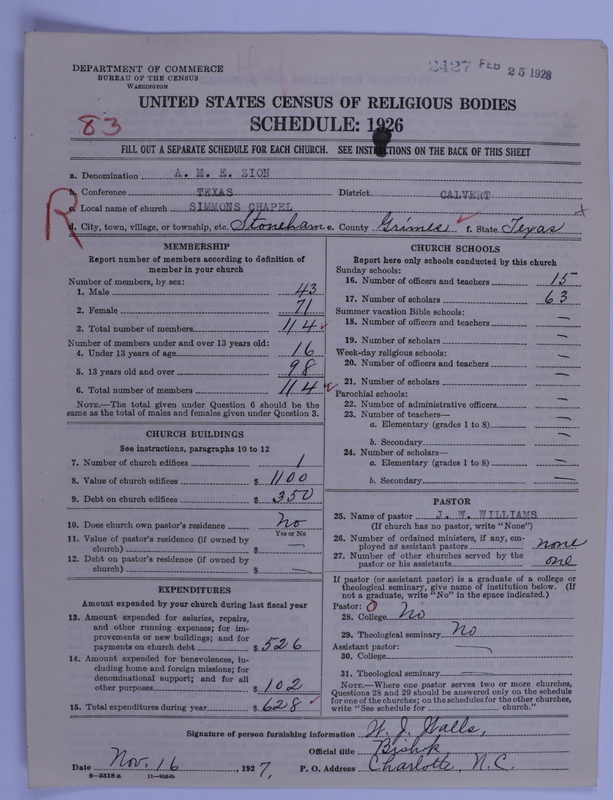 DEPARTMENT OF COMMERCE
BUREAU OF THE CENSUS
WASHINGTON
2427 FEB 25 1928
UNITED STATES CENSUS OF RELIGIOUS BODIES
83
SCHEDULE: 1926
FILL OUT A SEPARATE SCHEDULE FOR EACH CHURCH. SEE INSTRUCTIONS ON THE BACK OF THIS SHEET
a. Denomination A. M. E. ZION
b. Conference TEXAS District CALVERT
R
c. Local name of church SIMMONS CHAPEL
d. City, town, village, or township, etc. Stoneham e. County Grimes f. State Texas
MEMBERSHIP
Report number of members according to definition of
member in your church
Number of members, by sex:
1. Male 43
2. Female 71
3. Total number of members 114
Number of members under and over 13 years old:
4. Under 13 years of age 16
5. 13 years old and over 98
6. Total number of members 114
NOTE.—The total given under Question 6 should be
same as the total of males and females given under Question 3.
CHURCH BUILDINGS
See instructions, paragraphs 10 to 12
7. Number of church edifices 1
8. Value of church edifices $ 1100
9. Debt on church edifices $ 350
10. Does church own pastor's residence No
Yes or No
11. Value of pastor's residence (if owned by
church) $ —
12. Debt on pastor's residence (if owned by
church) $ —
EXPENDITURES
Amount expended by your church during last fiscal year
13. Amount expended for salaries, repairs,
and other running expenses; for im-
provements or new buildings; and for
payments on church debt $ 526
14. Amount expended for benevolences, in-
cluding home and foreign missions; for
denominational support; and for all
other purposes $ 102
15. Total expenditures during year $ 628
CHURCH SCHOOLS
Report here only schools conducted by this church
Sunday schools:
16. Number of officers and teachers 15
17. Number of scholars 63
Summer vacation Bible schools:
18. Number of officers and teachers —
19. Number of scholars —
Week-day religious schools:
20. Number of officers and teachers —
21. Number of scholars —
Parochial schools:
22. Number of administrative officers —
23. Number of teachers—
a. Elementary (grades 1 to 8) —
b. Secondary —
24. Number of scholars—
a. Elementary (grades 1 to 8) —
b. Secondary —
PASTOR
25. Name of pastor J. W. WILLIAMS
(If church has no pastor, write "None")
26. Number of ordained ministers, if any, em-
ployed as assistant pastors none
27. Number of other churches served by the
pastor or his assistants one
If pastor (or assistant pastor) is a graduate of a college or
theological seminary, give name of institution below. (If
not a graduate, write "No" in the space indicated.)
Pastor: 0
28. College No
29. Theological seminary No
Assistant pastor:
30. College —
31. Theological seminary —
NOTE.—Where one pastor serves two or more churches,
Questions 28 and 29 should be answered only on the schedule
for one of the churches; on the schedules for the other churches,
write "See schedule for church."
Signature of person furnishing information W. J. Walls,
Official title Bishop,
Date Nov. 16, 1927, P. O. Address Charlotte, N.C.